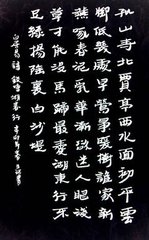 孤山寺北賈亭西水面初平雲
腳低幾處早鶯爭暖樹誰家新
燕啄春泥亂花漸欲迷人眼淺
草才能沒馬蹄最愛湖東行不
足綠楊陰裏白沙堤
白居易詩錢塘湖春行